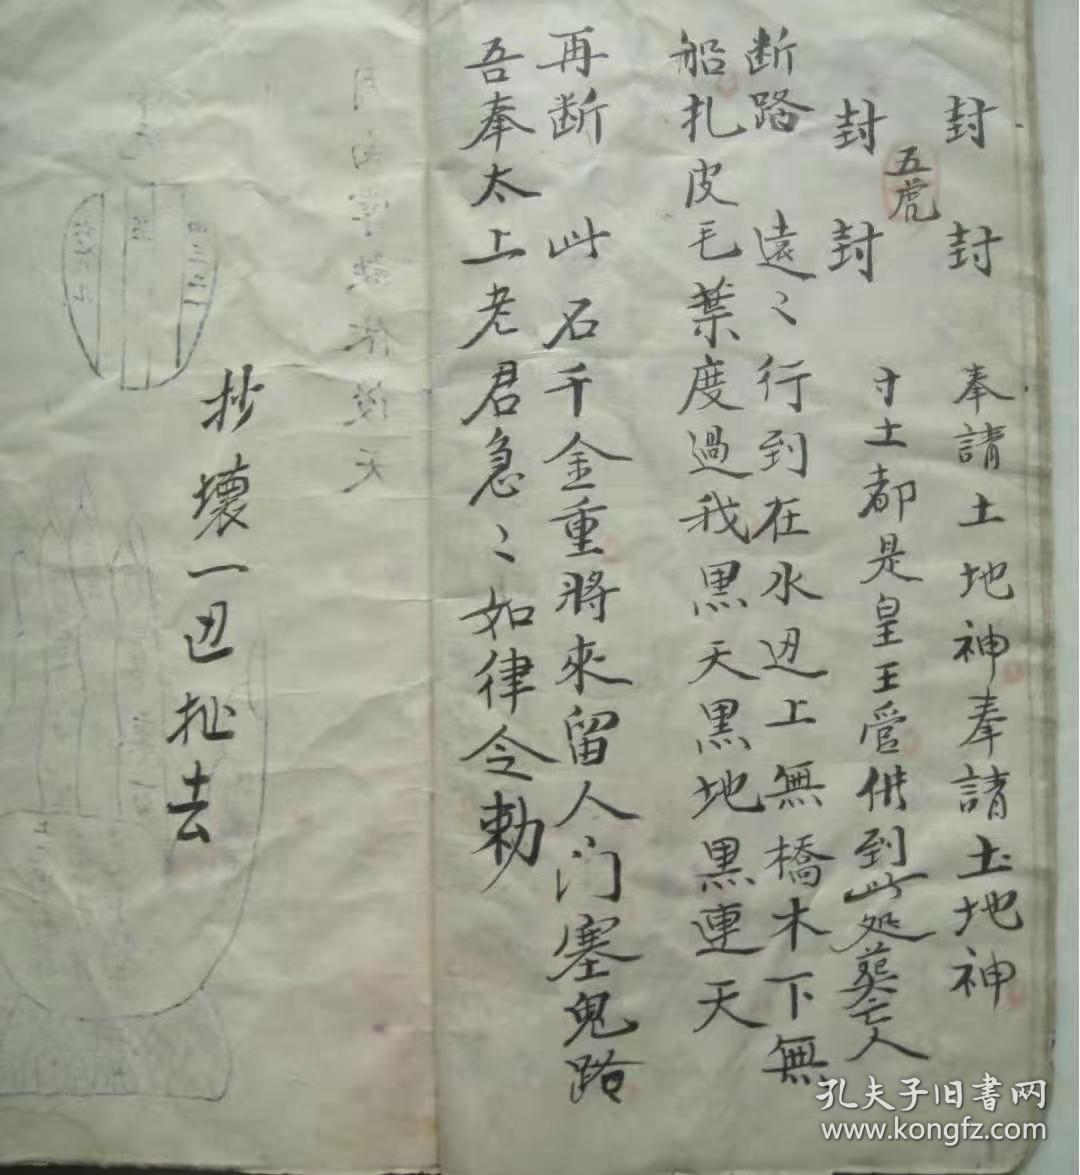 封 封 奉請土地神奉請土地神
五虎
封 封 寸土都是皇王管借到此处葬亡人
断路 遠〻行到在水边上無橋木下無
船扎皮毛葉度過我黑天黑地黑連天
再断 此石千金重將來留人门塞鬼路
吾奉太上老君急〻如律令勅
抄壞一边扯去
孔夫子旧书网
www.kongfz.com